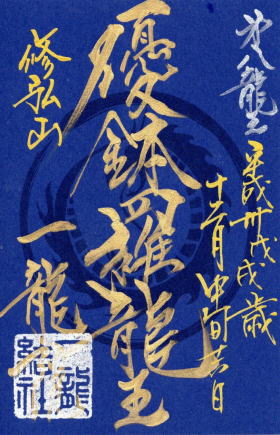 第八龍王
平成卅戊戌歳
十二月中旬廿日
優鉢羅龍王
修弘山
一龍
一龍結社